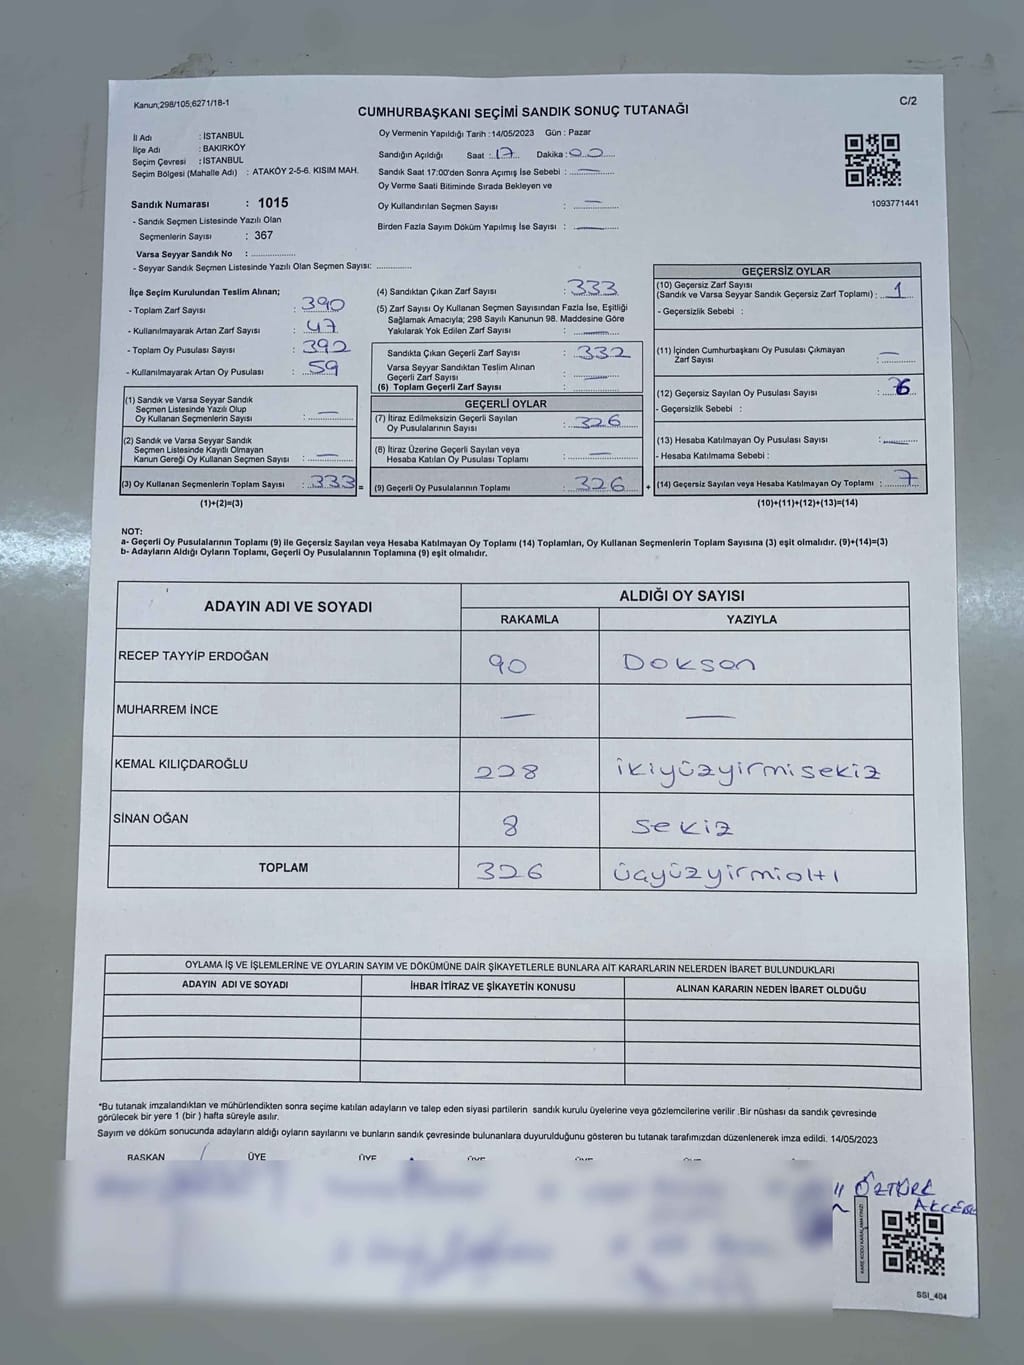 Kanun;298/105;6271/18-1
C/2
CUMHURBAŞKANI SEÇİMİ SANDIK SONUÇ TUTANAĞI
İl Adı : İSTANBUL
İlçe Adı : BAKIRKÖY
Seçim Çevresi : İSTANBUL
Seçim Bölgesi (Mahalle Adı) : ATAKÖY 2-5-6. KISIM MAH.
Oy Vermenin Yapıldığı Tarih :14/05/2023 Gün : Pazar
Sandığın Açıldığı Saat : 17 Dakika : 00
Sandık Saat 17:00'den Sonra Açımış İse Sebebi : —
Oy Verme Saati Bitiminde Sırada Bekleyen ve
Oy Kullandırılan Seçmen Sayısı : —
Birden Fazla Sayım Döküm Yapılmış İse Sayısı : —
1093771441
Sandık Numarası : 1015
- Sandık Seçmen Listesinde Yazılı Olan
Seçmenlerin Sayısı : 367
Varsa Seyyar Sandık No : ................
- Seyyar Sandık Seçmen Listesinde Yazılı Olan Seçmen Sayısı: .............
İlçe Seçim Kurulundan Teslim Alınan;
- Toplam Zarf Sayısı : 390
- Kullanılmayarak Artan Zarf Sayısı : 47
- Toplam Oy Pusulası Sayısı : 392
- Kullanılmayarak Artan Oy Pusulası : 59
(1) Sandık ve Varsa Seyyar Sandık
Seçmen Listesinde Yazılı Olup
Oy Kullanan Seçmenlerin Sayısı : —
(2) Sandık ve Varsa Seyyar Sandık
Seçmen Listesinde Kayıtlı Olmayan
Kanun Gereği Oy Kullanan Seçmen Sayısı : —
(3) Oy Kullanan Seçmenlerin Toplam Sayısı : 333 =
(1)+(2)=(3)
(4) Sandıktan Çıkan Zarf Sayısı : 333
(5) Zarf Sayısı Oy Kullanan Seçmen Sayısından Fazla İse, Eşitliği
Sağlamak Amacıyla; 298 Sayılı Kanunun 98. Maddesine Göre
Yakılarak Yok Edilen Zarf Sayısı : —
Sandıkta Çıkan Geçerli Zarf Sayısı : 332
Varsa Seyyar Sandıktan Teslim Alınan
Geçerli Zarf Sayısı : —
(6) Toplam Geçerli Zarf Sayısı : .............
GEÇERLİ OYLAR
(7) İtiraz Edilmeksizin Geçerli Sayılan
Oy Pusulalarının Sayısı : 326
(8) İtiraz Üzerine Geçerli Sayılan veya
Hesaba Katılan Oy Pusulası Toplamı : —
(9) Geçerli Oy Pusulalarının Toplamı : 326 +
GEÇERSİZ OYLAR
(10) Geçersiz Zarf Sayısı
(Sandık ve Varsa Seyyar Sandık Geçersiz Zarf Toplamı) : 1
- Geçersizlik Sebebi :
(11) İçinden Cumhurbaşkanı Oy Pusulası Çıkmayan
Zarf Sayısı : —
(12) Geçersiz Sayılan Oy Pusulası Sayısı : 6
- Geçersizlik Sebebi :
(13) Hesaba Katılmayan Oy Pusulası Sayısı : —
- Hesaba Katılmama Sebebi :
(14) Geçersiz Sayılan veya Hesaba Katılmayan Oy Toplamı : 7
(10)+(11)+(12)+(13)=(14)
NOT:
a- Geçerli Oy Pusulalarının Toplamı (9) ile Geçersiz Sayılan veya Hesaba Katılmayan Oy Toplamı (14) Toplamları, Oy Kullanan Seçmenlerin Toplam Sayısına (3) eşit olmalıdır. (9)+(14)=(3)
b- Adayların Aldığı Oyların Toplamı, Geçerli Oy Pusulalarının Toplamına (9) eşit olmalıdır.
ADAYIN ADI VE SOYADI
ALDIĞI OY SAYISI
RAKAMLA YAZIYLA
RECEP TAYYİP ERDOĞAN 90 Doksan
MUHARREM İNCE — —
KEMAL KILIÇDAROĞLU 228 ikiyüzyirmisekiz
SİNAN OĞAN 8 sekiz
TOPLAM 326 üçyüzyirmialtı
OYLAMA İŞ VE İŞLEMLERİNE VE OYLARIN SAYIM VE DÖKÜMÜNE DAİR ŞİKAYETLERLE BUNLARA AİT KARARLARIN NELERDEN İBARET BULUNDUKLARI
ADAYIN ADI VE SOYADI İHBAR İTİRAZ VE ŞİKAYETİN KONUSU ALINAN KARARIN NEDEN İBARET OLDUĞU
*Bu tutanak imzalandıktan ve mühürlendikten sonra seçime katılan adayların ve talep eden siyasi partilerin sandık kurulu üyelerine veya gözlemcilerine verilir .Bir nüshası da sandık çevresinde
görülecek bir yere 1 (bir ) hafta süreyle asılır.
Sayım ve döküm sonucunda adayların aldığı oyların sayılarını ve bunların sandık çevresinde bulunanlara duyurulduğunu gösteren bu tutanak tarafımızdan düzenlenerek imza edildi. 14/05/2023
BAŞKAN ÜYE ÜYE ÜYE ÜYE ÜYE
ÖZTÜRK
KARE KODU KARALAMAYINIZ!
SSI_404